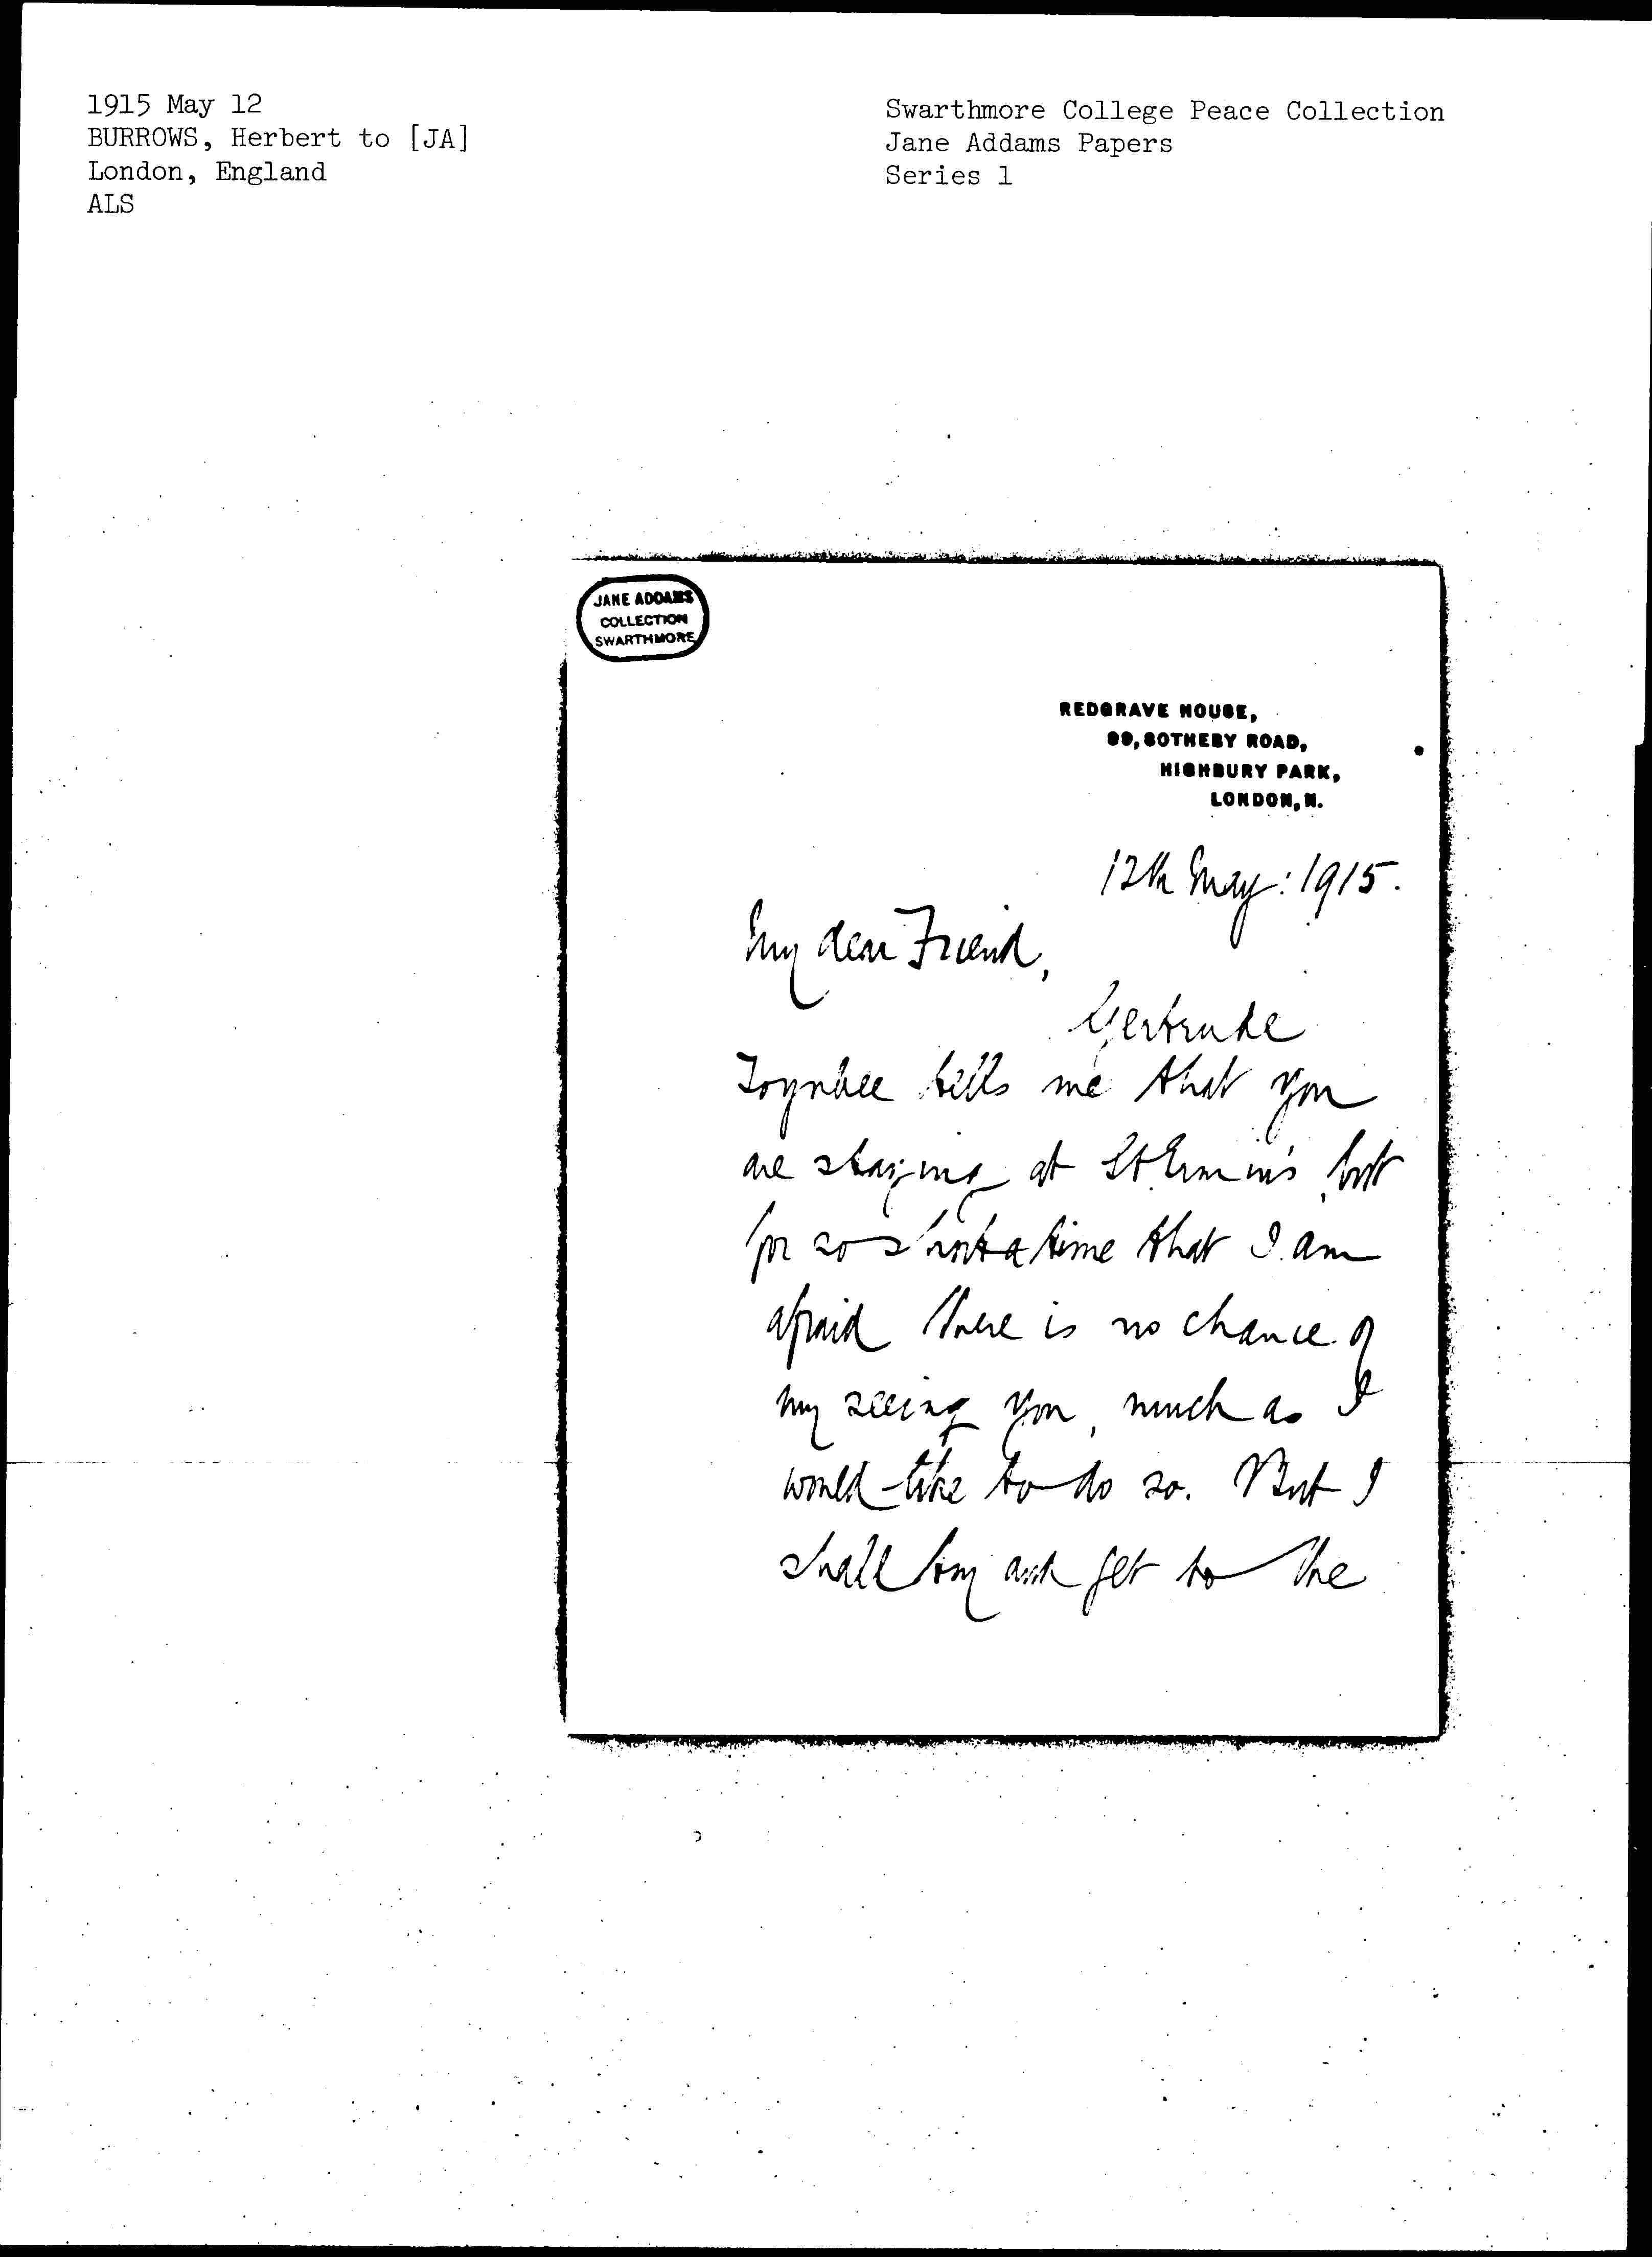 1915 May 12
BURROWS, Herbert to [JA]
London, England
ALS
Swarthmore College Peace Collection
Jane Addams Papers
Series 1
JANE ADDAMS
COLLECTION
SWARTHMORE
REDGRAVE HOUSE,
99, SOTHEBY ROAD,
HIGHBURY PARK,
LONDON, N.
12th May: 1915.
My dear Friend,
Gertrude
Toynbee tells me that you
are staying at St Ermin's, but
for so short a time that I am
afraid there is no chance of
my seeing you, much as I
would like to do so. But I
shall try and get to the